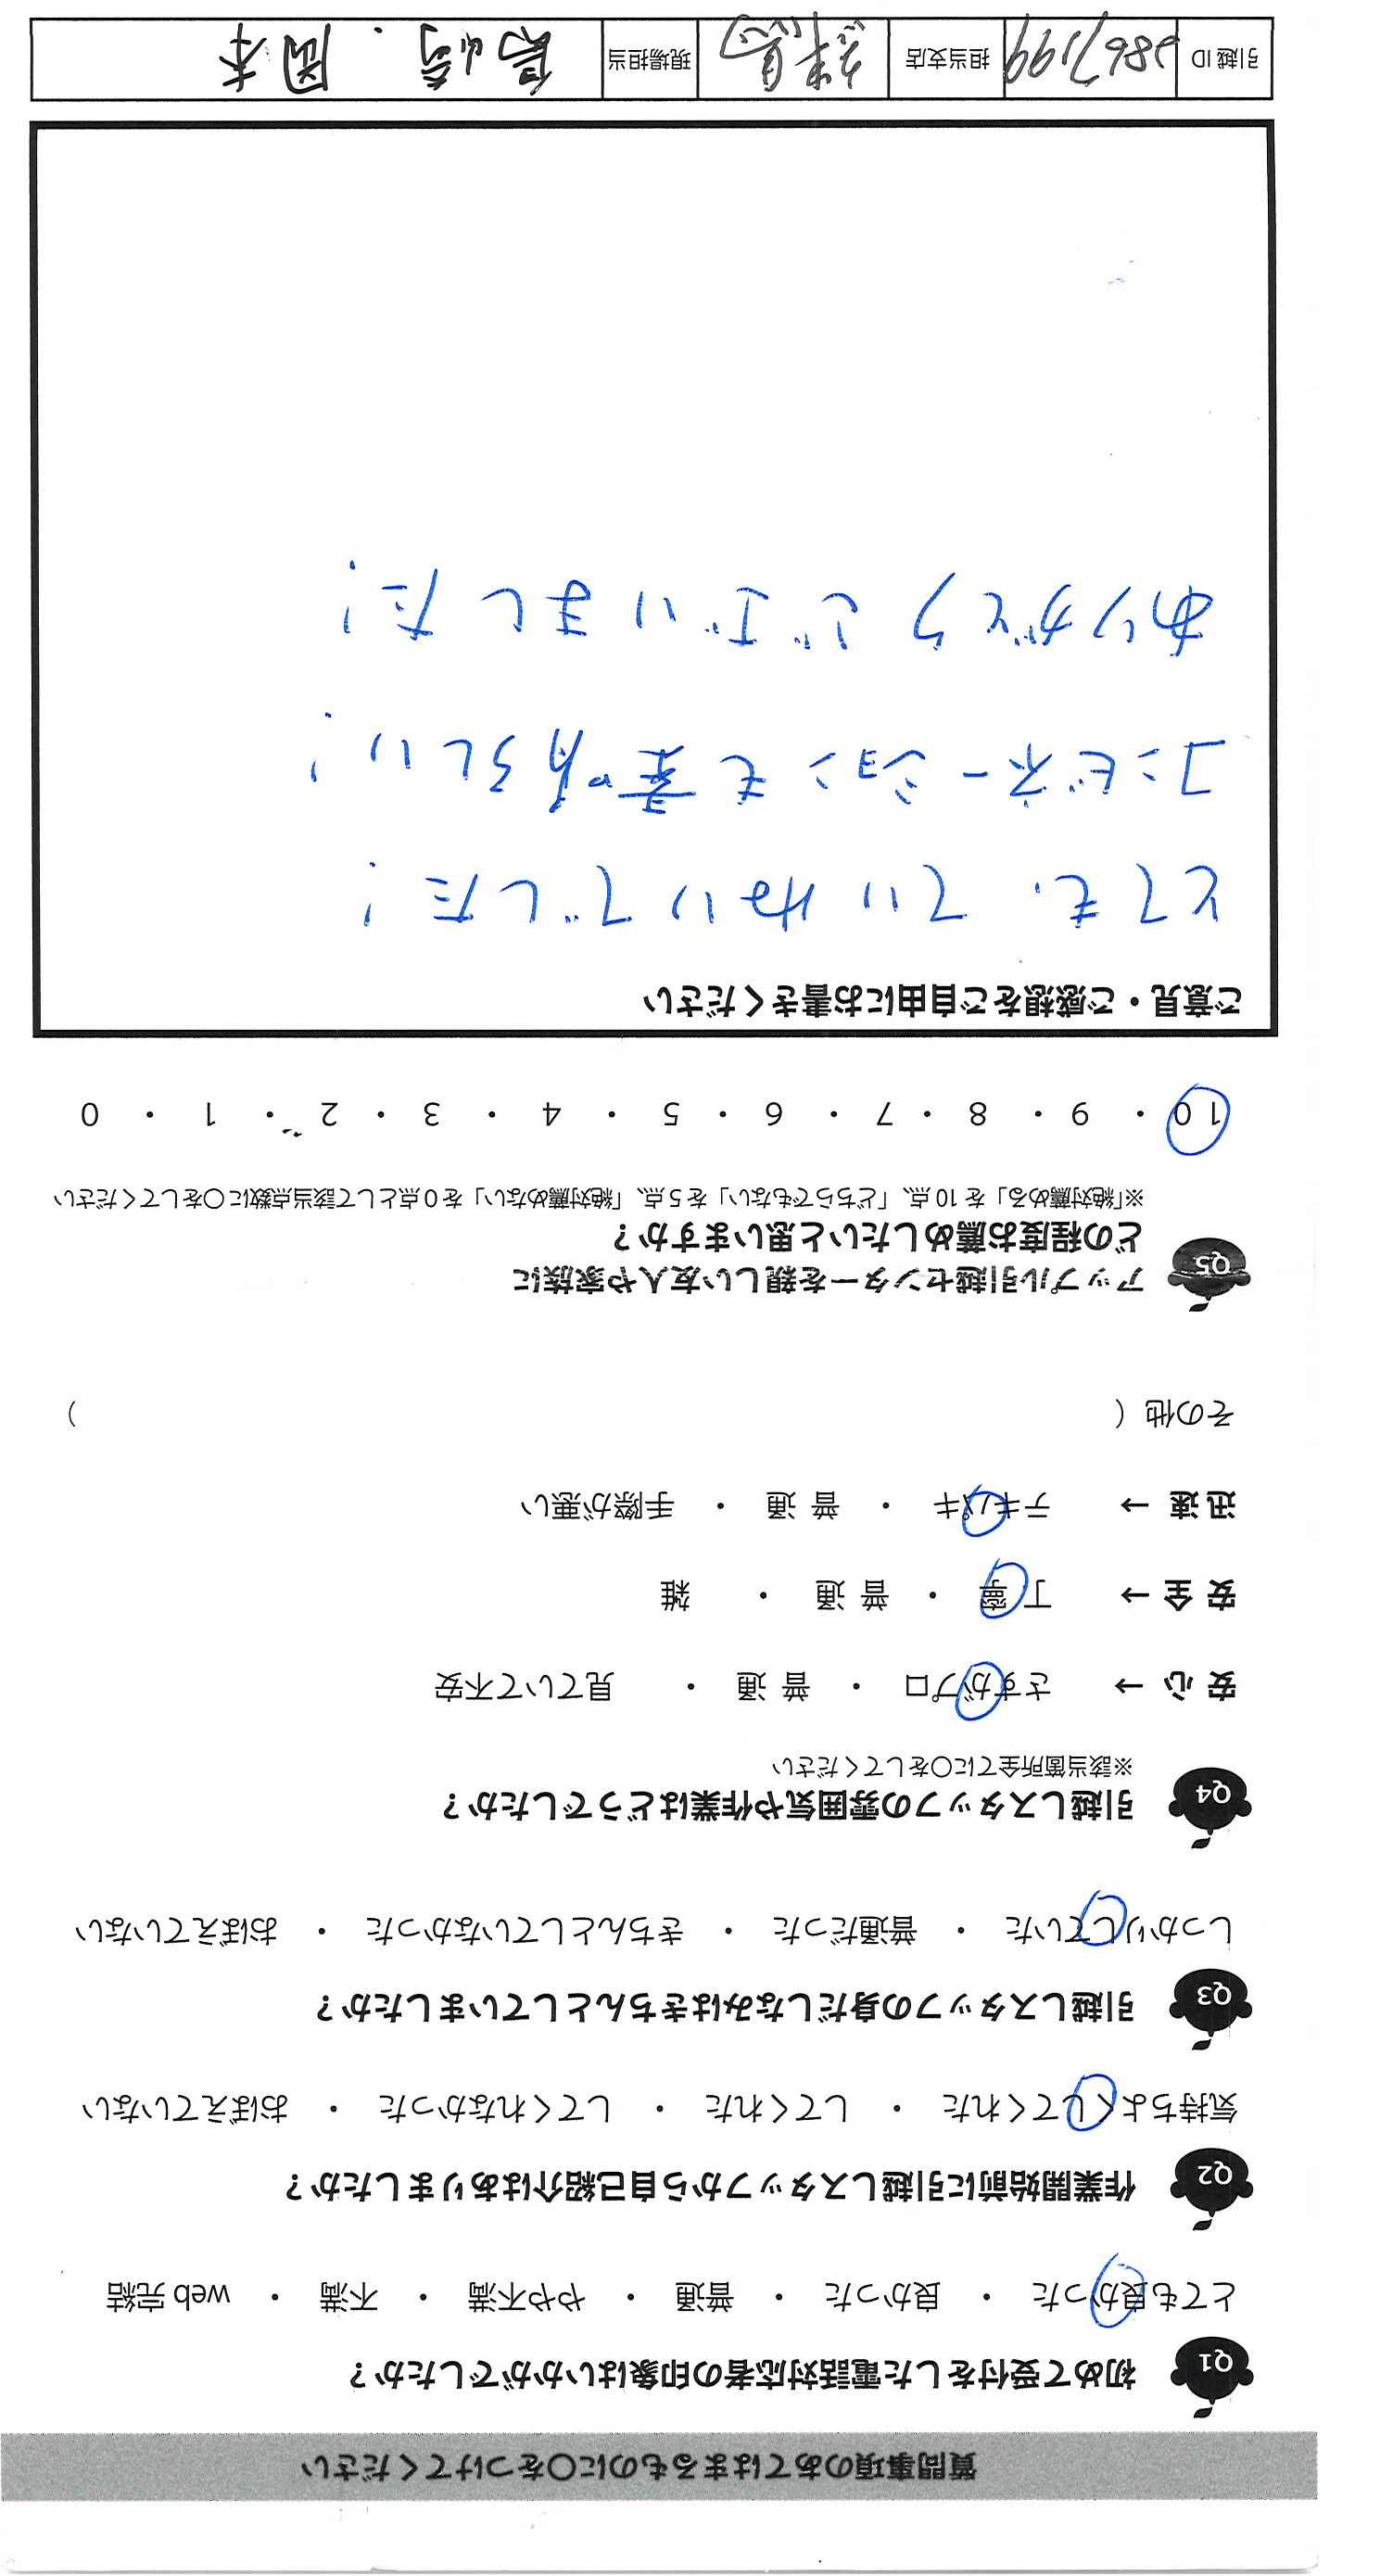 質問事項のあてはまるものに○をつけてください
Q1 初めて受付をした電話対応者の印象はいかがでしたか？
とても良かった ・ 良かった ・ 普通 ・ やや不満 ・ 不満 ・ web 完結
Q2 作業開始前に引越しスタッフから自己紹介はありましたか？
気持ちよくしてくれた ・ してくれた ・ してくれなかった ・ おぼえていない
Q3 引越しスタッフの身だしなみはきちんとしていましたか？
しっかりしていた ・ 普通だった ・ きちんとしていなかった ・ おぼえていない
Q4 引越しスタッフの雰囲気や作業はどうでしたか？
※該当箇所全てに○をしてください
安 心 → さすがプロ ・ 普 通 ・ 見ていて不安
安 全 → 丁 寧 ・ 普 通 ・ 雑
迅 速 → テキパキ ・ 普 通 ・ 手際が悪い
その他 （ ）
Q5 アップル引越センターを親しい友人や家族に
どの程度お薦めしたいと思いますか？
※「絶対薦める」を 10 点、「どちらでもない」を 5 点、「絶対薦めない」を 0 点として該当点数に○をしてください
10 ・ 9 ・ 8 ・ 7 ・ 6 ・ 5 ・ 4 ・ 3 ・ 2 ・ 1 ・ 0
ご意見・ご感想をご自由にお書きください
とても、ていねいでした！
コンビネーションも素晴らしい！
ありがとうございました！
引越 ID 2867199 担当支店 練馬 現場担当 長崎 ・ 岡本